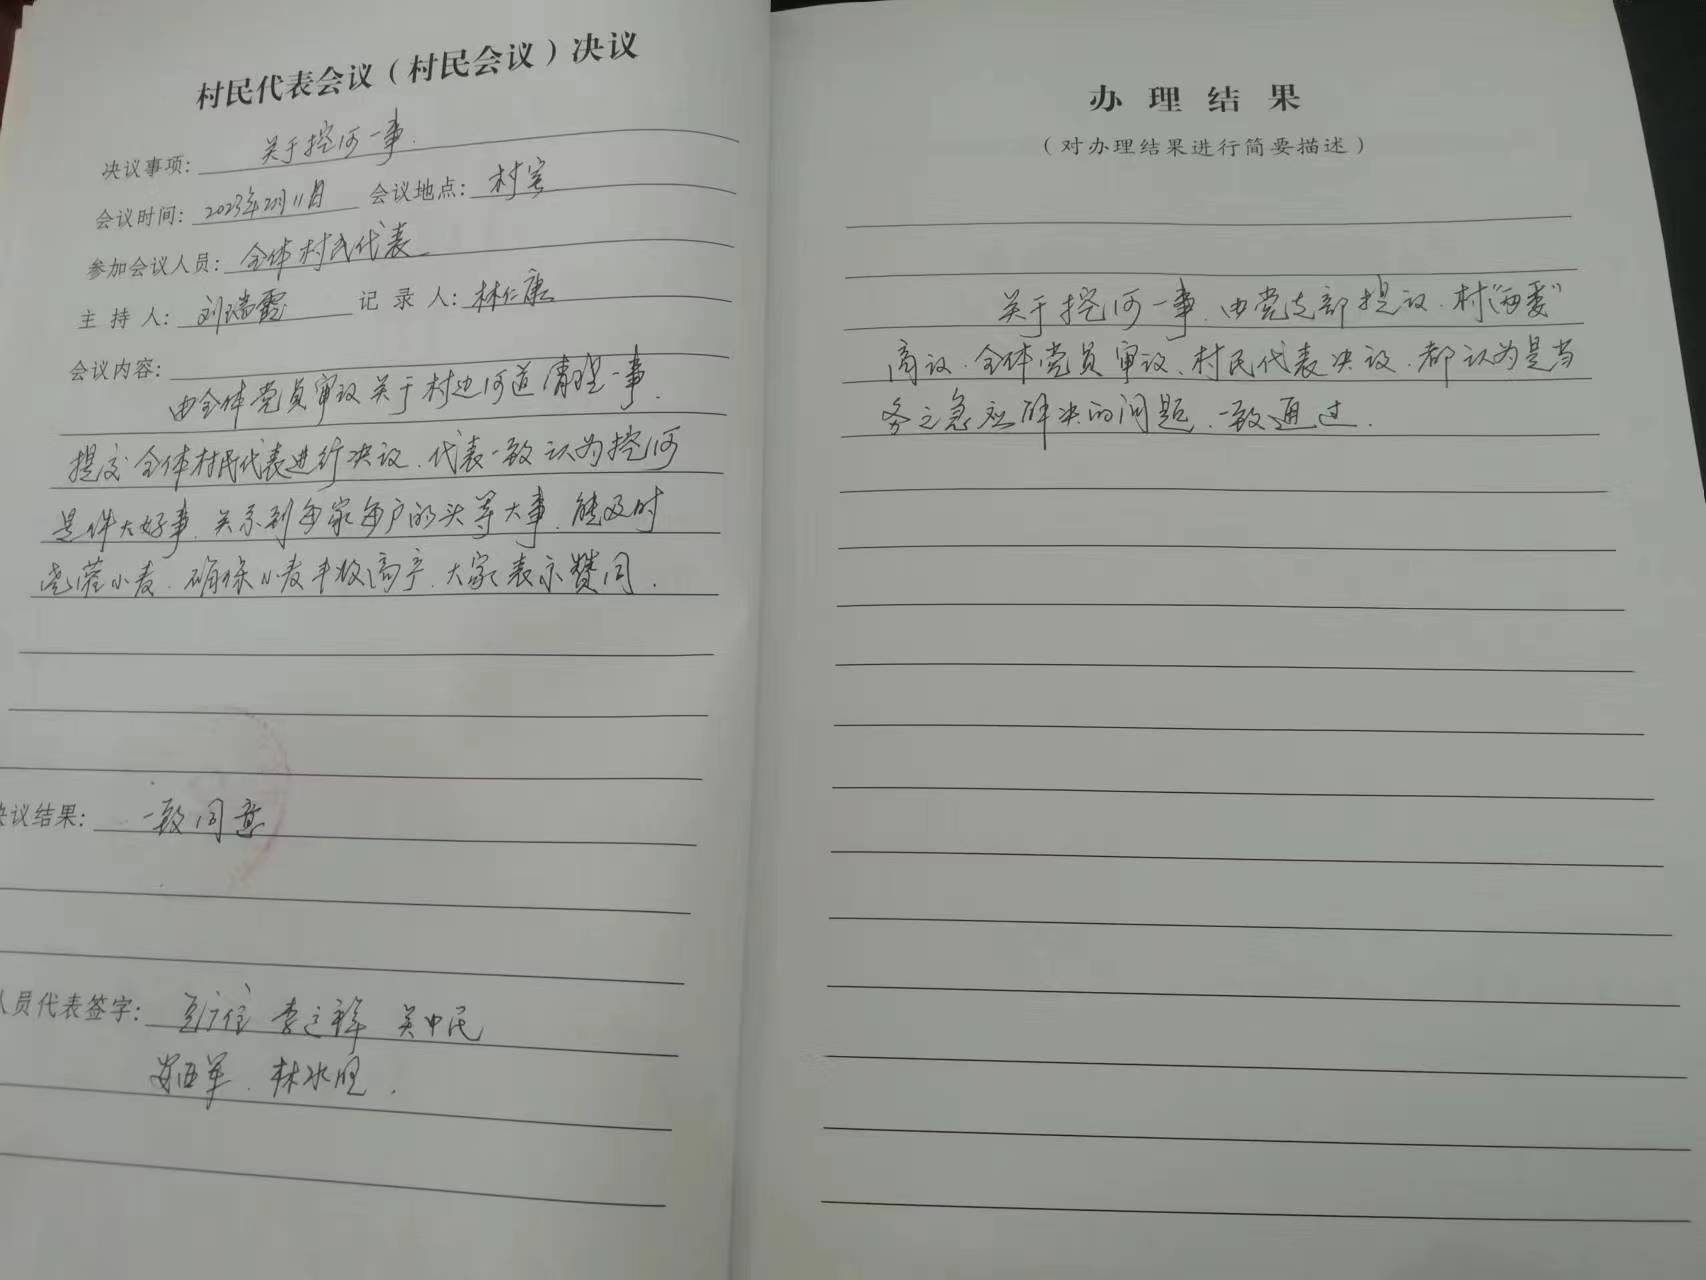 村民代表会议（村民会议）决议
决议事项：关于挖河一事.
会议时间：2023年2月11日 会议地点：村室
参加会议人员：全体村民代表
主持人：刘瑞霞 记录人：林仁康
会议内容：
由全体党员审议关于村边河道清理一事.
提交全体村民代表进行决议.代表一致认为挖河
是件大好事.关系到每家每户的头等大事.能及时
浇灌小麦.确保小麦丰收高产.大家表示赞同.
决议结果：一致同意
人员代表签字：李运祥 吴中民
林水旺.
办理结果
（对办理结果进行简要描述）
关于挖河一事.由党支部提议.村“两委”
商议.全体党员审议、村民代表决议.都认为是当
务之急应解决的问题.一致通过.